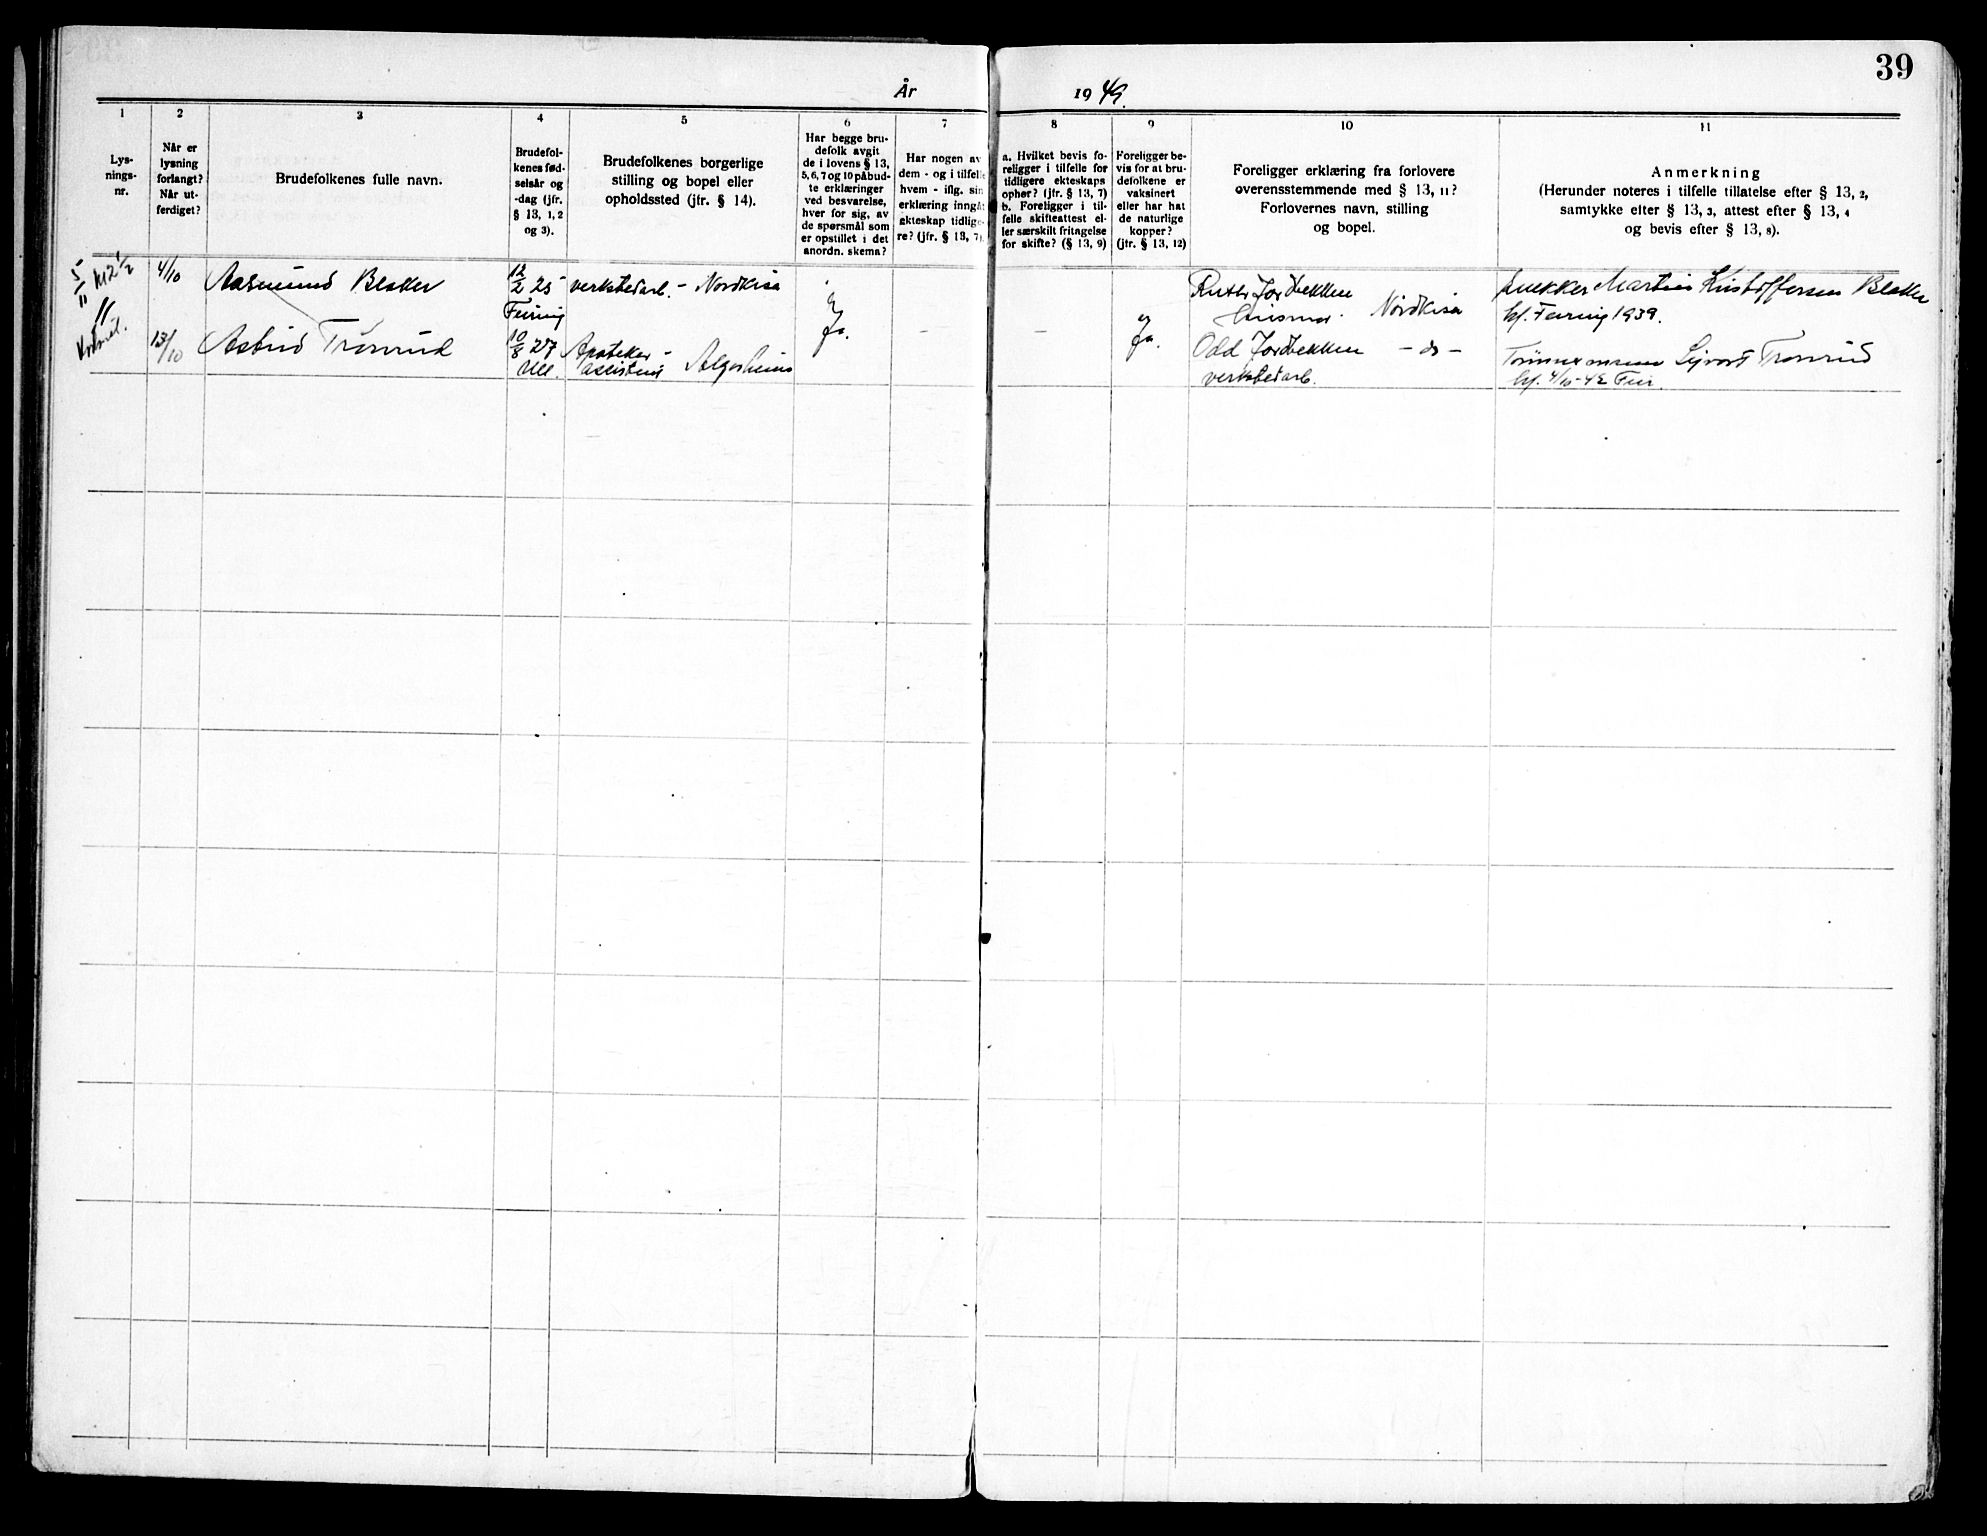 39
År 1949.
1
Lys-
nings-
nr.
2
Når er
lysning
forlangt?
Når ut-
ferdiget?
3
Brudefolkenes fulle navn.
4
Brudefol-
kenes fød-
selsår og
-dag (jfr.
§ 13, 1, 2
og 3).
5
Brudefolkenes borgerlige
stilling og bopel eller
opholdssted (jfr. § 14).
6
Har begge bru-
defolk avgit
de i lovens § 13,
5, 6, 7 og 10 påbud-
te erklæringer
ved besvarelse,
hver for sig, av
de spørsmål som
er opstillet i det
anordn. skema?
7
Har nogen av
dem - og i tilfelle
hvem - iflg. sin
erklæring inngåt
ekteskap tidlige-
re? (jfr. § 13, 7).
8
a. Hvilket bevis fo-
religger i tilfelle for
tidligere ekteskaps
ophør? (jfr. § 13, 7)
b. Foreligger i til-
felle skifteattest el-
ler særskilt fritagelse
for skifte? (§ 13, 9)
9
Foreligger be-
vis for at bru-
defolkene er
vaksinert
eller har hat
de naturlige
kopper?
(jfr. § 13, 12)
10
Foreligger erklæring fra forlovere
overensstemmende med § 13, 11?
Forlovernes navn, stilling
og bopel.
11
Anmerkning
(Herunder noteres i tilfelle tillatelse efter § 13, 2,
samtykke efter § 13, 3, attest efter § 13, 4
og bevis efter § 13, 8).
5/11 kl 2 1/2
4/10
Aasmund Blekker
12/2 25
Feiring
verkstedarb. - Nordkisa
13/10
Astrid Trønrud
10/8 27
Ull.
Apoteker -
assistent Algarheim
Ja.
-
-
Ja.
Ruth Jordbekken
Husmor. Nordkisa
Odd Jordbekken - do -
verkstedarb.
Snekker Martin Kristoffersen Blekker
bf. Feiring 1939.
Tømmermann Sigvart Trønrud
bf. 4/10-42 Feir.